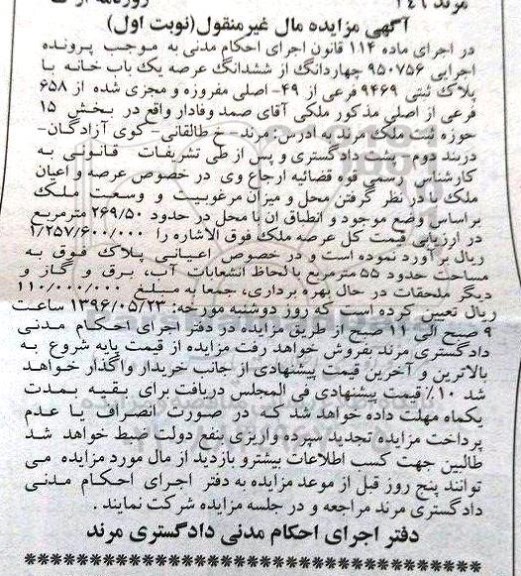 مرند ۲۴۹
آگهی مزایده مال غیرمنقول(نوبت اول)
در اجرای ماده ۱۱۴ قانون اجرای احکام مدنی به موجب پرونده
اجرایی ۹۵۰۷۵۶ چهاردانگ از ششدانگ عرصه یک باب خانه با
پلاک ثبتی ۹۴۶۹ فرعی از ۴۹- اصلی مفروزه و مجزی شده از ۶۵۸
فرعی از اصلی مذکور ملکی آقای صمد وفادار واقع در بخش ۱۵
حوزه ثبت ملک مرند به آدرس: مرند- خ طالقانی- کوی آزادگان-
دربند دوم- پشت دادگستری و پس از طی تشریفات قانونی به
کارشناس رسمی قوه قضائیه ارجاع وی در خصوص عرصه و اعیان
ملک با در نظر گرفتن محل و میزان مرغوبیت و وسعت ملک
براساس وضع موجود و انطباق ان با محل در حدود ۲۶۹/۵۰ مترمربع
در ارزیابی قیمت کل عرصه ملک فوق الاشاره را ۱/۲۵۷/۶۰۰/۰۰۰
ریال برآورد نموده است و در خصوص اعیانی پلاک فوق به
مساحت حدود ۵۵ مترمربع با لحاظ انشعابات آب، برق و گاز و
دیگر ملحقات در حال بهره برداری، جمعا به مبلغ ۱۱۰/۰۰۰/۰۰۰
ریال تعیین کرده است که روز دوشنبه مورخه: ۱۳۹۶/۰۵/۲۳ ساعت
۹ صبح الی ۱۱ صبح از طریق مزایده در دفتر اجرای احکام مدنی
دادگستری مرند بفروش خواهد رفت مزایده از قیمت پایه شروع به
بالاترین و آخرین قیمت پیشنهادی از جانب خریدار واگذار خواهد
شد ۱۰٪ قیمت پیشنهادی فی المجلس دریافت برای بقیه بمدت
یکماه مهلت داده خواهد شد که در صورت انصراف یا عدم
پرداخت مزایده تجدید سپرده واریزی بنفع دولت ضبط خواهد شد
طالبین جهت کسب اطلاعات بیشترو بازدید از مال مورد مزایده می
توانند پنج روز قبل از موعد مزایده به دفتر اجرای احکام مدنی
دادگستری مرند مراجعه و در جلسه مزایده شرکت نمایند .
دفتر اجرای احکام مدنی دادگستری مرند